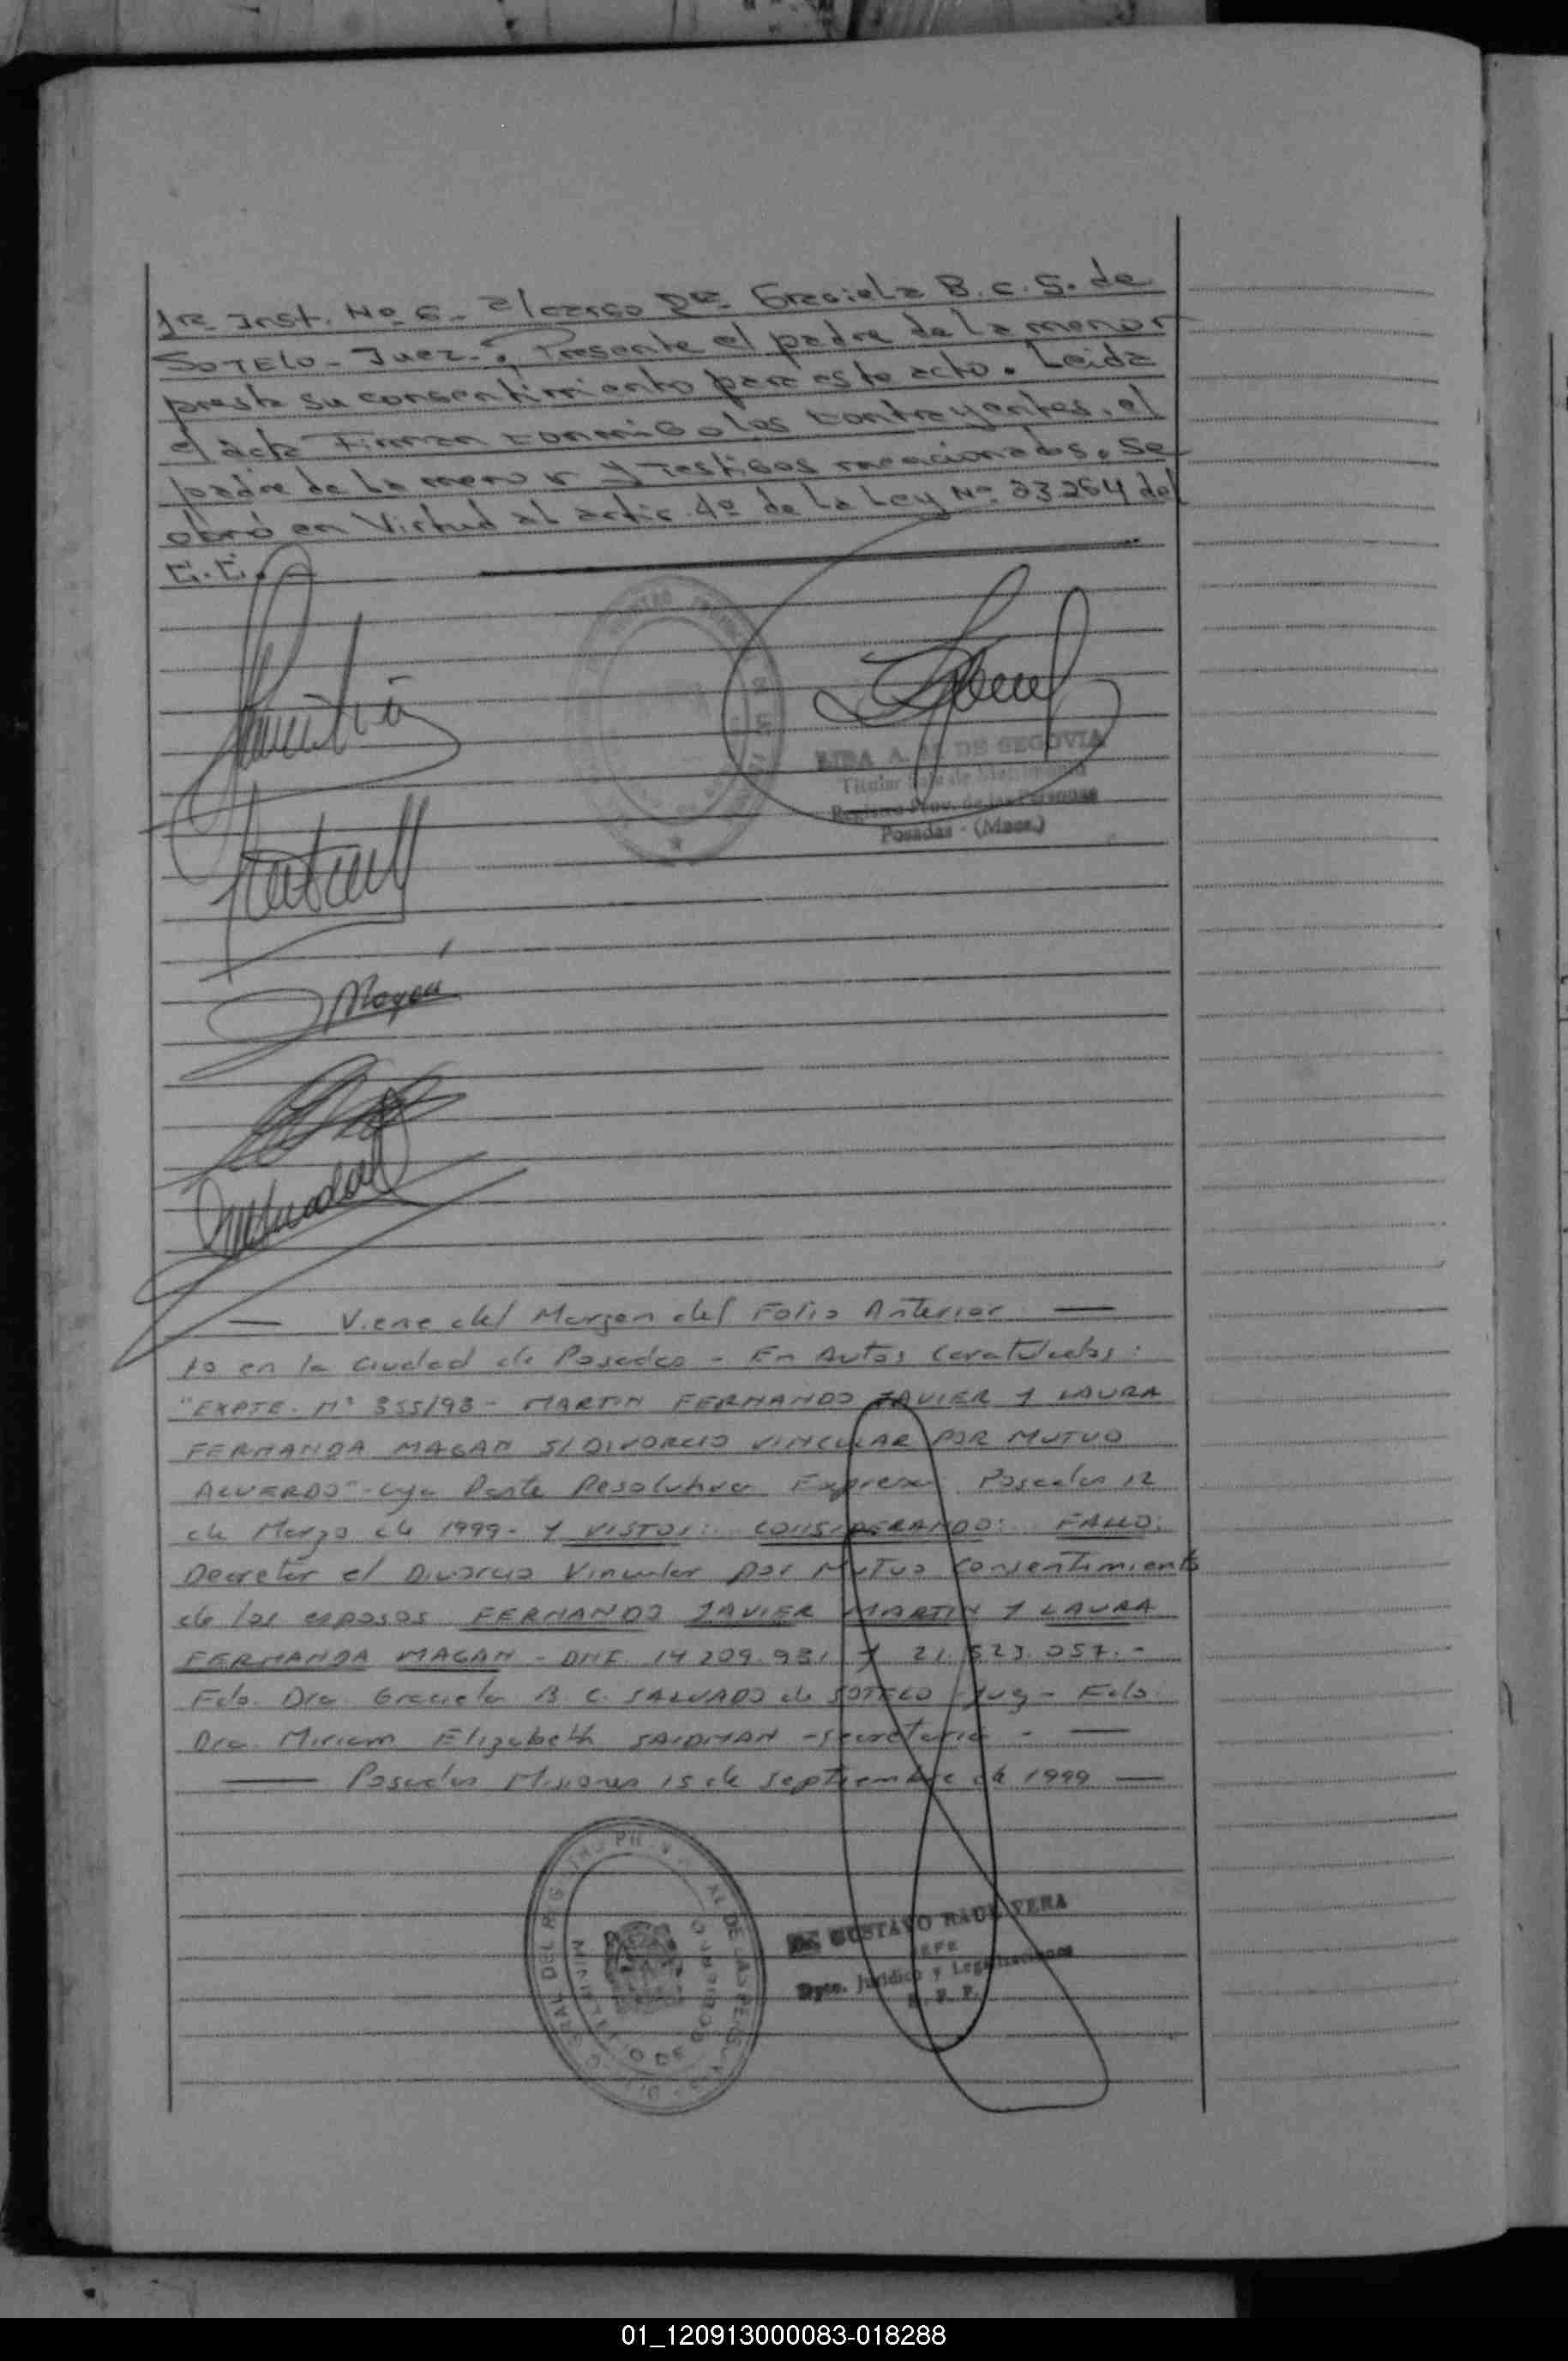 1ra Inst. Nº 6 - a/cargo Dra. Graciela B. C. S. de
SOTELO - Juez -. Presente el padre de la menor
presta su consentimiento para este acto. Leída
el acta Firman conmigo los contrayentes, el
padre de la menor y Testigos mencionados, Se
obró en Virtud al artic. 4º de la Ley Nº 23.264 del
C.C.
LIDA A. M. DE SEGOVIA
Titular Sala de Matrimonio
Registro Prov. de las Personas
Posadas - (Mnes.)
Magan
— Viene del Margen del Folio Anterior —
to en la Ciudad de Posadas - En Autos Caratulados:
"EXPTE. Nº 355/98 - MARTIN FERNANDO JAVIER Y LAURA
FERNANDA MAGAN S/DIVORCIO VINCULAR POR MUTUO
ACUERDO" - cuya Parte Resolutiva Expresa Posadas 12
de Marzo de 1999 - Y VISTOS: CONSIDERANDO: FALLO:
Decretar el Divorcio Vincular por Mutuo Consentimiento
de los esposos FERNANDO JAVIER MARTIN Y LAURA
FERNANDA MAGAN - DNI. 14.209.931 y 21.523.057.-
Fdo. Dra. Graciela B. C. SALVADO de SOTELO - Juez - Fdo.
Dra. Miriam Elizabeth SAIDMAN - Secretaria - —
— Posadas Misiones 15 de Septiembre de 1999 —
GUSTAVO RAUL VERA
JEFE
Dpto. Jurídico y Legalizaciones
R. P. P.
MINISTERIO DE GOBIERNO
01_120913000083-018288